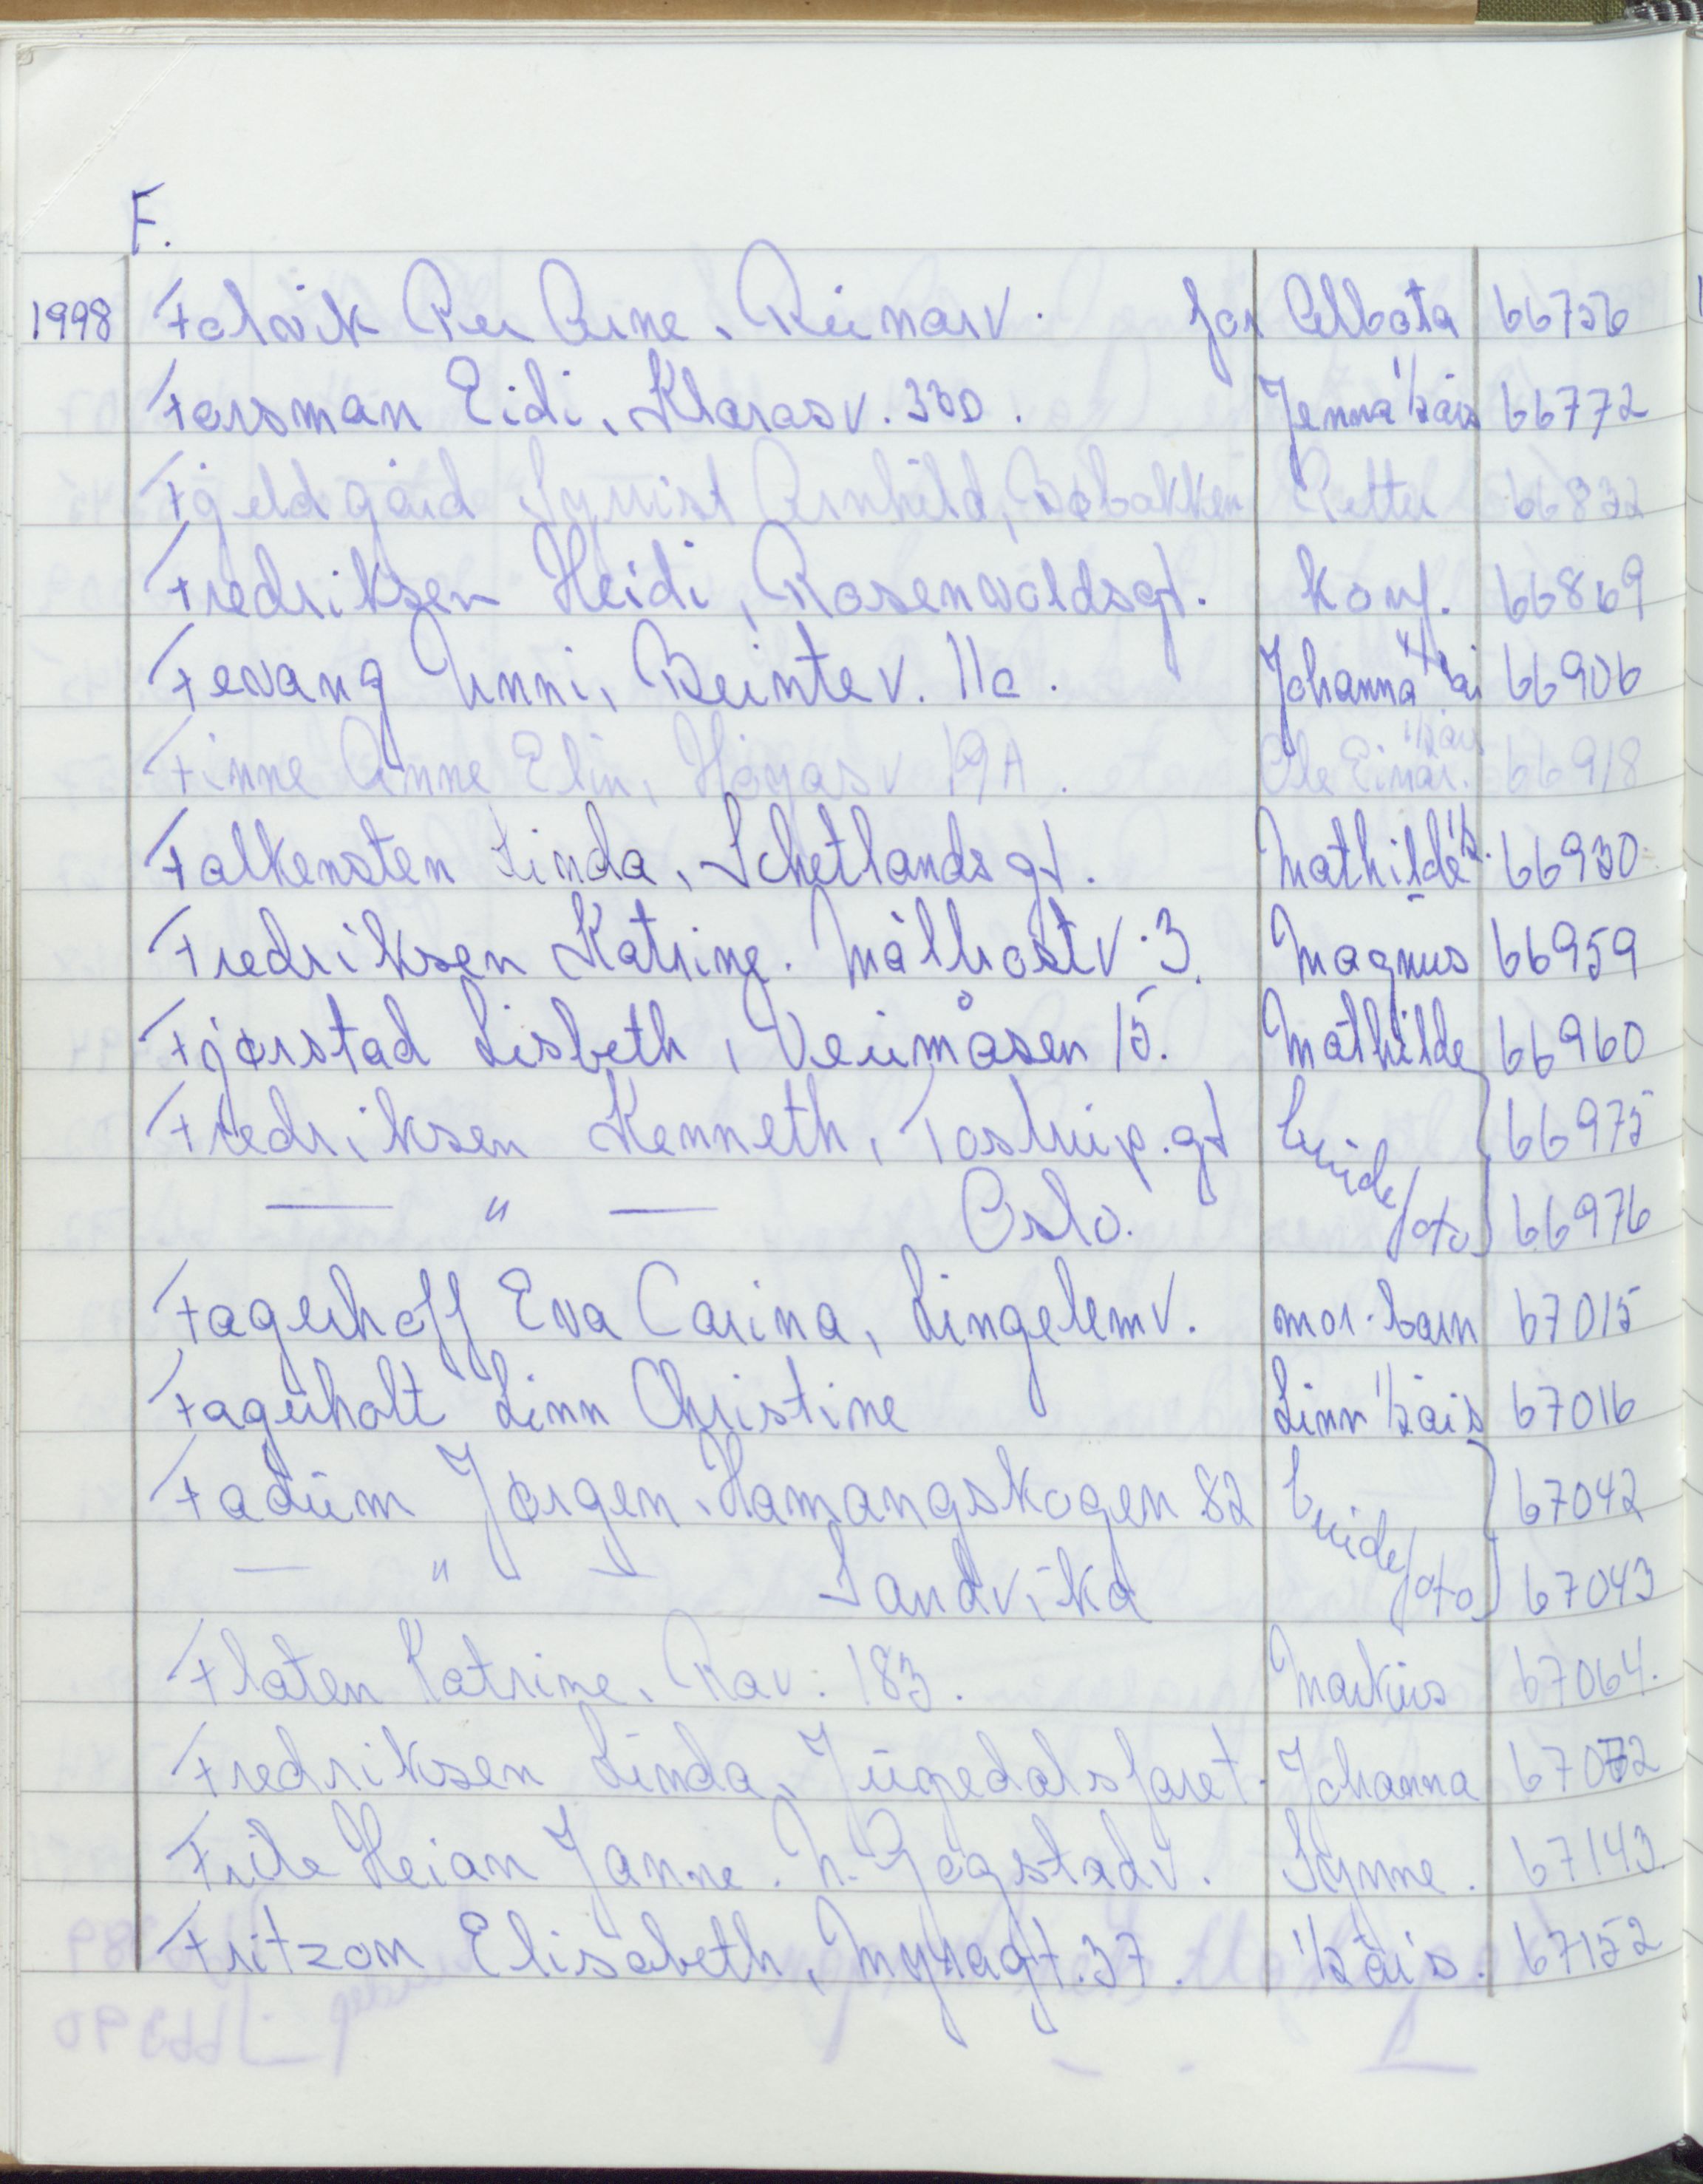 F.
1998 Falvik Per Arne, Reinarv. for Albata 66756
Forsman Eidi, Klarasv. 33D. Jenna 1/2 års 66772
Fjeldgård Synnist Arnhild, Bøbakken Petter 66832
Fredriksen Heidi, Rosenvoldsgt. konf. 66869
Fevang Unni, Beintev. 11c. Johanna 66906
Finne Anne Elin, Høyåsv 19A. Ole Einar. 1/2 års 66918
Falkensten Linda, Schetlandsgt. Mathilde 1/2. 66930
Fredriksen Katrine. Målbostv. 3. Magnus 66959
Fjørstad Lisbeth, Veumåsen 15. Mathilde 66960
Fredriksen Kenneth, Tostrup.gt brudefoto 66975
— " — Oslo. 66976
Fagerhoff Eva Carina, Lingelemv. mor-barn 67015
Fagerholt Linn Christine Linn 1/2 års 67016
Fadum Jørgen, Hamangskogen 82 brudefoto 67042
— " — Sandvika 67043
Flaten Katrine, Rav: 183. Markus 67064.
Fredriksen Linda, Jugedalsfaret. Johanna 67072
Heian Janne. N. Gogstadv. Synne. 67143.
Fritzon Elisabeth, Myragt. 37. 1/2 års. 67152